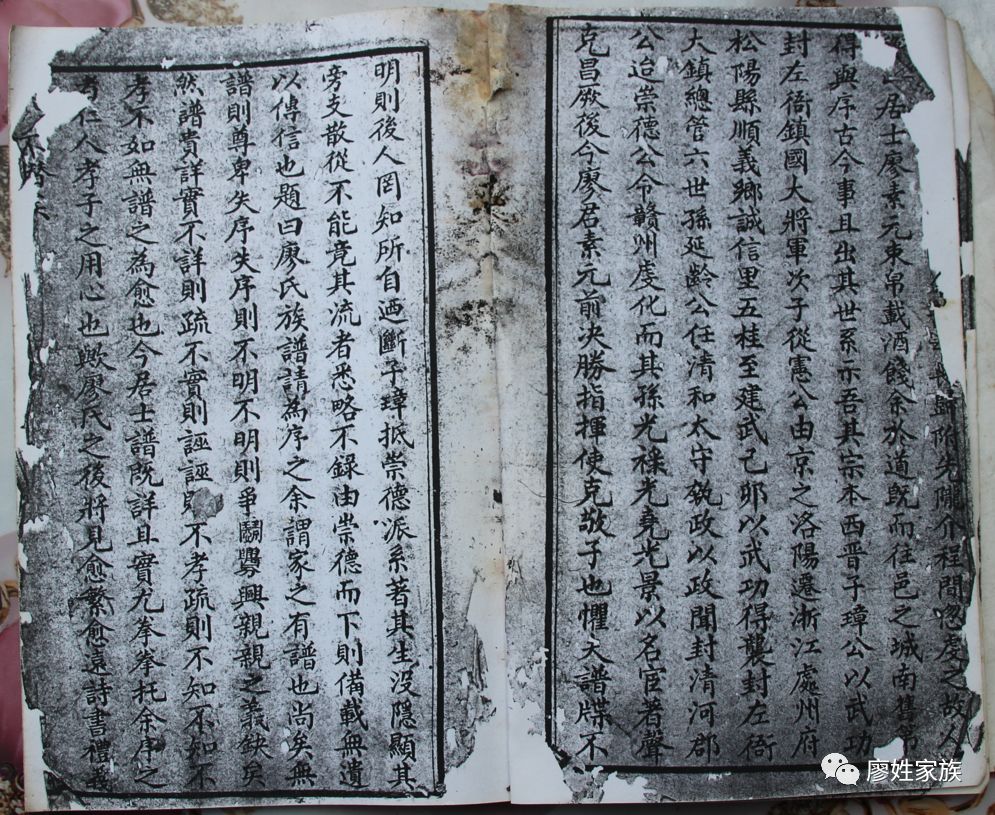 附先隴介程間忽度之故人
居士廖素元束帛載酒餞余於道旣而往邑之城南舊
得與序古今事且出其世系示吾其宗本西晉子璋公以武功
封左衙鎮國大將軍次子從憲公由京之洛陽遷浙江處州府
松陽縣順義鄉誠信里五桂至建武己卯以武功得襲封左衙
大鎮總管六世孫延齡公任清和太守執政以政聞封清河郡
公迨崇德公令贛州虔化而其孫光祿光堯光景以名宦著聲
克昌厥後今廖君素元前决勝指揮使克敬子也懼夫譜牒不
明則後人罔知所自迺斷子璋抵崇德派系著其生沒隱顯其
旁支散從不能竟其流者悉略不錄由崇德而下則備載無遺
以傳信也題曰廖氏族譜請為序之余謂家之有譜也尚矣無
譜則尊卑失序失序則不明不明則爭鬬釁興親親之義缺矣
然譜貴詳實不詳則疏不實則誣誣則不孝疏則不知不知不
孝不如無譜之為愈也今居士譜旣詳且實尤拳拳托余序之
仁人孝子之用心也歟廖氏之後將見愈繁愈遠詩書禮義
廖姓家族